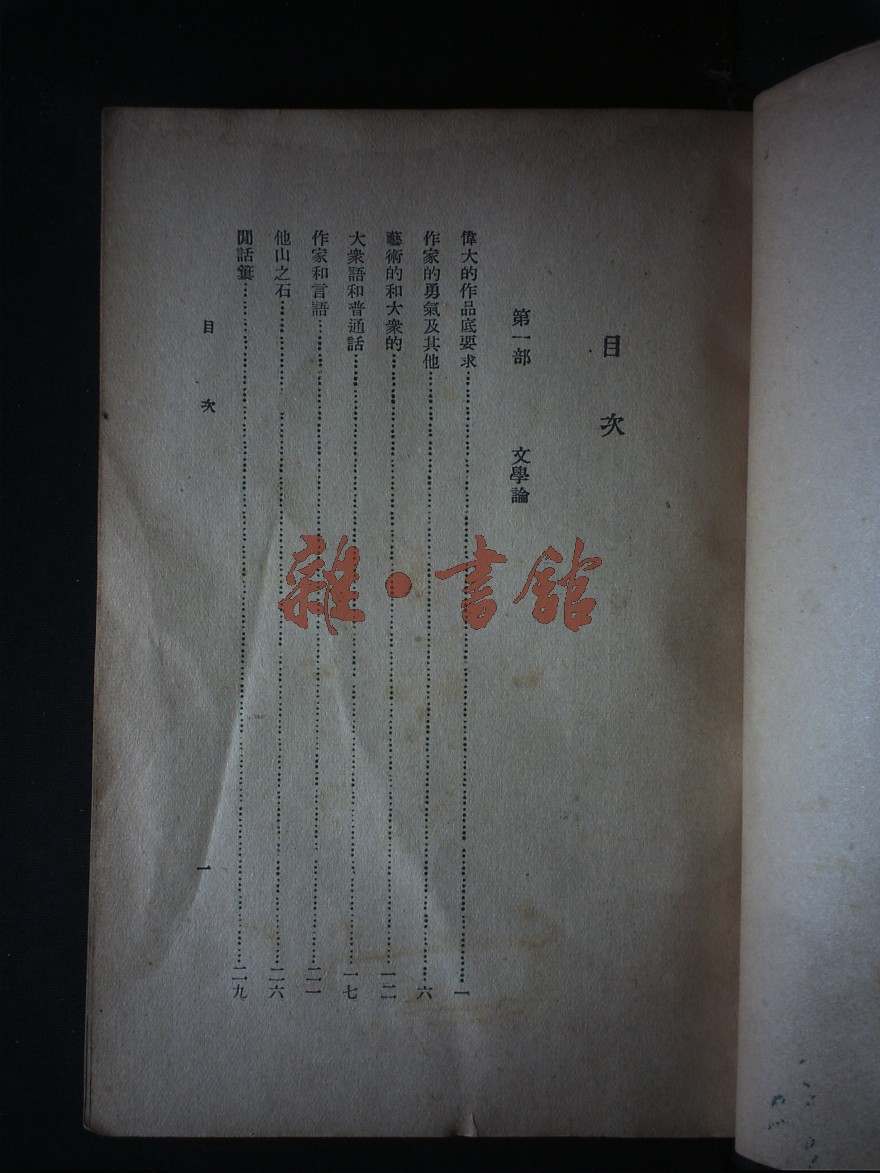 目次
第一部 文學論
偉大的作品底要求……一
作家的勇氣及其他……六
藝術的和大衆的……一二
大衆語和普通話……一七
作家和言語……二一
他山之石……二六
閒話簍……二九
目次
一
雜·書館